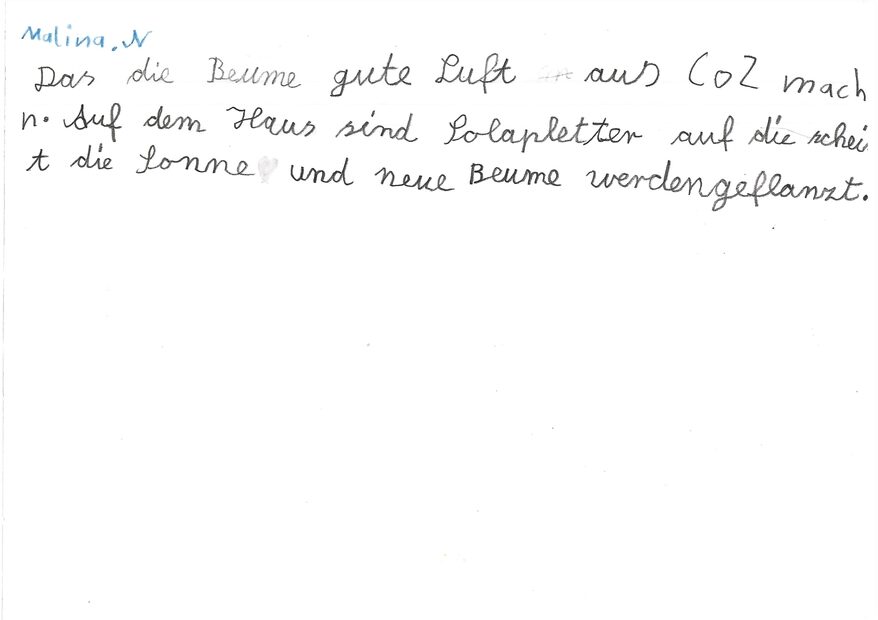 Malina. N
Das die Beume gute Luft aus CO2 mach
n. Auf dem Haus sind Solapletter auf die schei
t die Sonne und neue Beume werdengeflanzt.